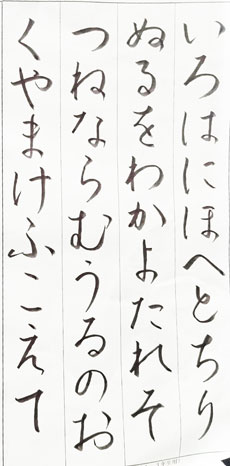 いろはにほへとちり
ぬるをわかよたれそ
つねならむうゐのお
くやまけふこえて